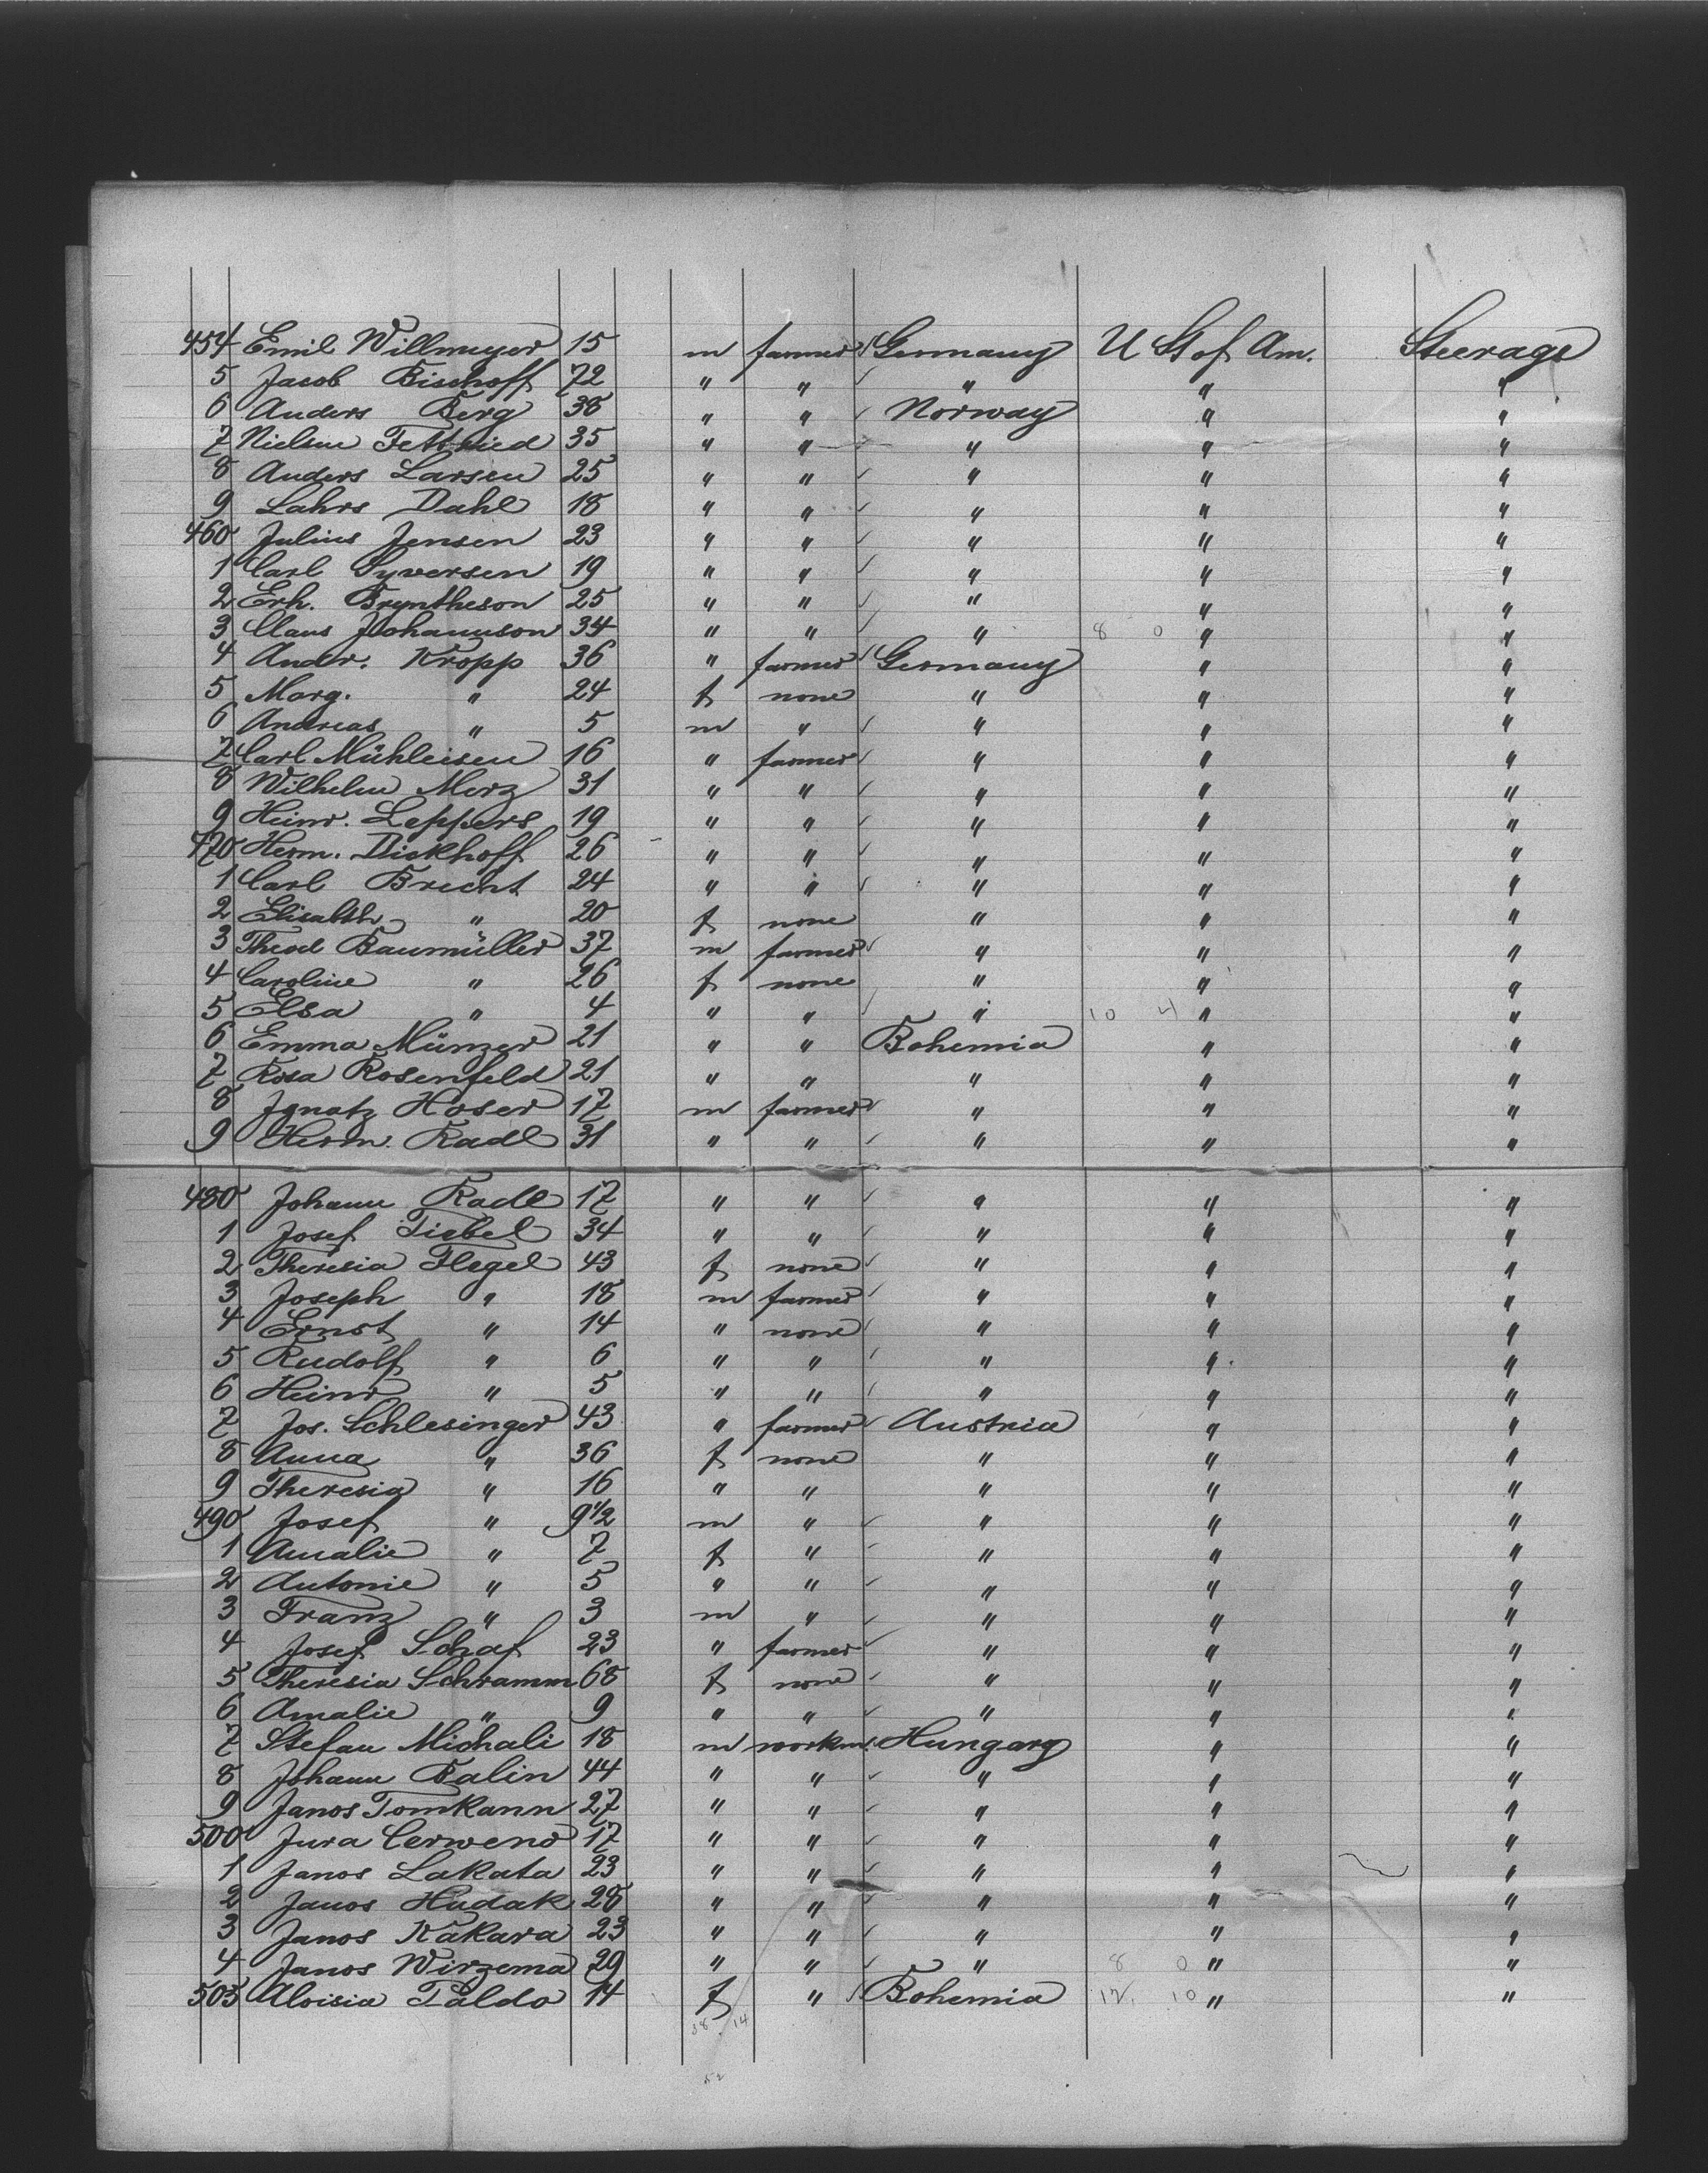 454 Emil Willmeyer 15 m farmer Germany U St of Am. Steerage
5 Jacob Bischoff 72 " " " " "
6 Anders Berg 38 " " Norway " "
7 Nielsen 35 " " " " "
8 Anders Larsen 25 " " " " "
9 Lahrs Dahl 18 " " " " "
460 Julius Jensen 23 " " " " "
1 Carl Syversen 19 " " " " "
2 Erh. Bryntheson 25 " " " " "
3 Claus Johannson 34 " " " 8 0 " "
4 Andr. Kropp 36 " farmer Germany " "
5 Marg. " 24 f none " " "
6 Andreas " 5 m " " " "
7 Carl Mühleisen 16 " farmer " " "
8 Wilhelm Merz 31 " " " " "
9 Heinr. Leppers 19 " " " " "
470 Herm. Dickhoff 26 " " " " "
1 Carl Brecht 24 " " " " "
2 Elisabth " 20 f none " " "
3 Theod Baumüller 37 m farmer " " "
4 Caroline " 26 f none " " "
5 Elsa " 4 " " " 10 4 " "
6 Emma Münzer 21 " " Bohemia " "
7 Rosa Rosenfeld 21 " " " " "
8 Ignatz Hoser 17 m farmer " " "
9 Herm. Radl 31 " " " " "
480 Johann Radl 17 " " " " "
1 Josef Tiebel 34 " " " " "
2 Theresia Flegel 43 f none " " "
3 Joseph " 18 m farmer " " "
4 Ernst " 14 " none " " "
5 Rudolf " 6 " " " " "
6 Heinr " 5 " " " " "
7 Jos. Schlesinger 43 " farmer Austria " "
8 Anna " 36 f none " " "
9 Theresia " 16 " " " " "
490 Josef " 9 1/2 m " " " "
1 Amalie " 7 f " " " "
2 Antonie " 5 " " " " "
3 Franz " 3 m " " " "
4 Josef Schaf 23 " farmer " " "
5 Theresia Schramm 68 f none " " "
6 Amalie " 9 " " " " "
7 Stefan Michali 18 m workm. Hungary " "
8 Johann Balin 44 " " " " "
9 Janos Tomkann 27 " " " " "
500 Jura Cerweno 17 " " " " "
1 Janos Lakata 23 " " " " "
2 Janos Hudak 28 " " " " "
3 Janos Kakara 23 " " " " "
4 Janos Wirzema 29 " " " 8 0 " "
505 Aloisia Paldo 14 f " Bohemia 12 10 " "
38 14
52